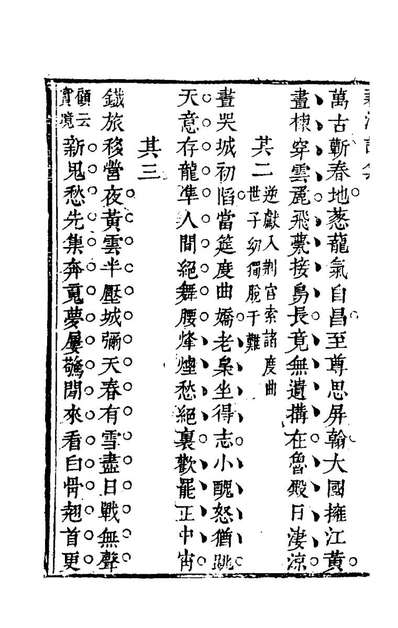 萬古蘄春地葱龍氣自昌至尊思屏翰大國擁江黃
畫棟穿雲麗飛甍接鳥長竟無遺搆在魯殿日淒涼
其二
逆獻入荆宮索諸度曲
世子幼獨脫于難
晝哭城初陷當筵度曲嬌老梟坐得志小醜怒猶跳
天意存龍準人間絕舞腰烽煙愁絕裏歡罷正中宵
其三
鐵旅移營夜黃雲半壓城彌天春有雪盡日戰無聲
顧云
實境
新鬼愁先集奔䰟夢屢驚閒來看白骨翹首更